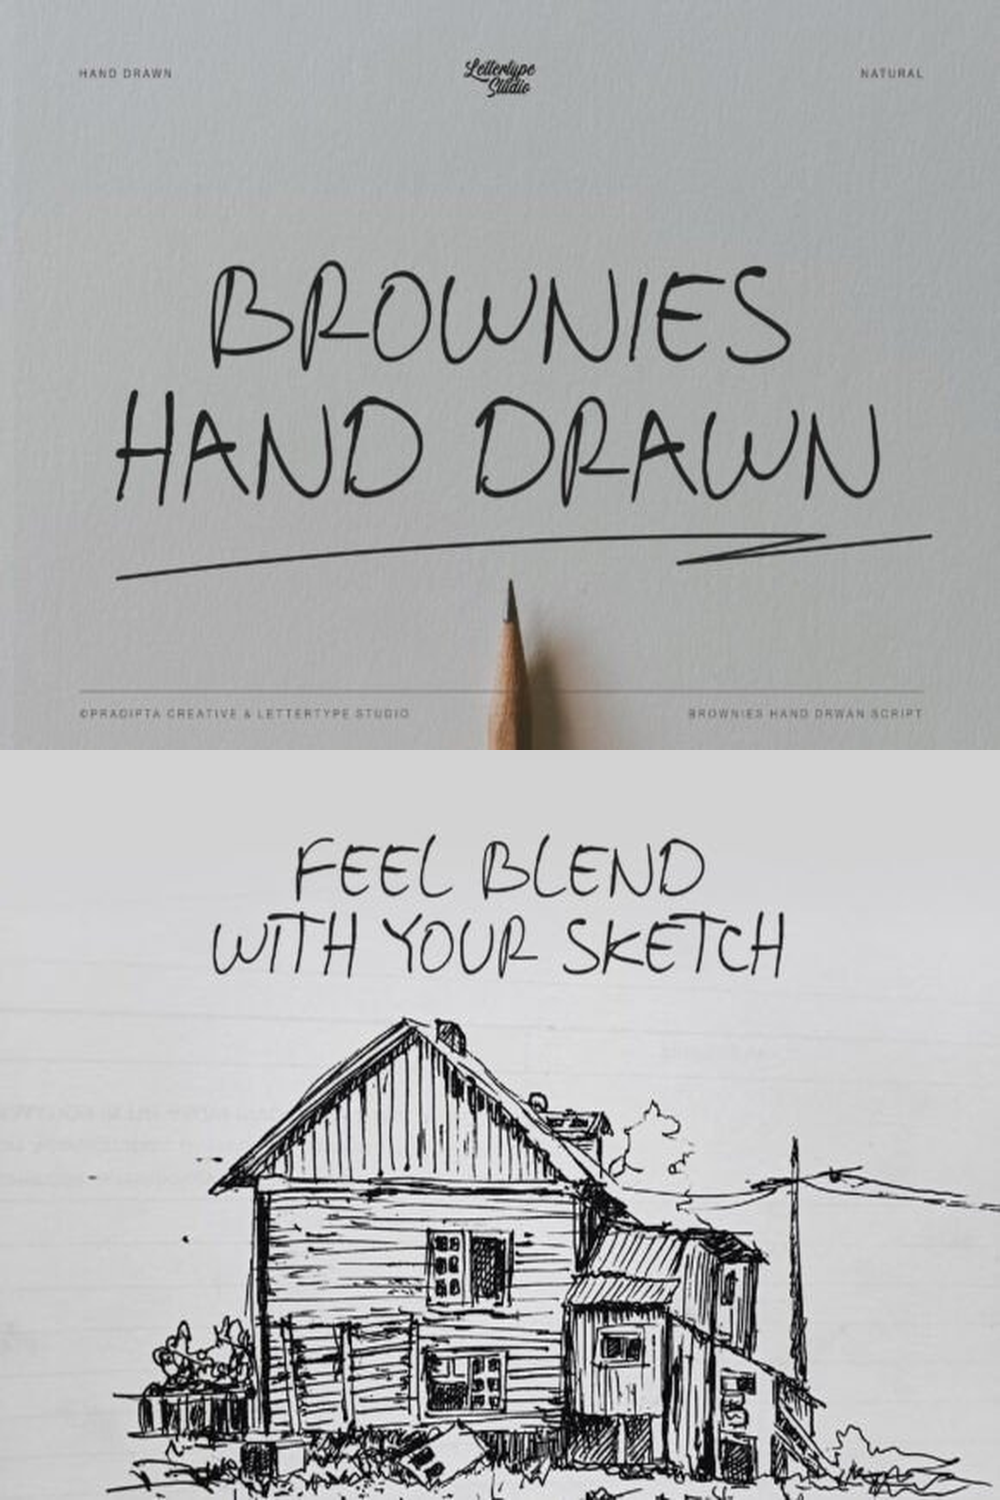 HAND DRAWN
Lettertype Studio
NATURAL
BROWNIES
HAND DRAWN
©PRADIPTA CREATIVE & LETTERTYPE STUDIO
BROWNIES HAND DRWAN SCRIPT
FEEL BLEND
WITH YOUR SKETCH